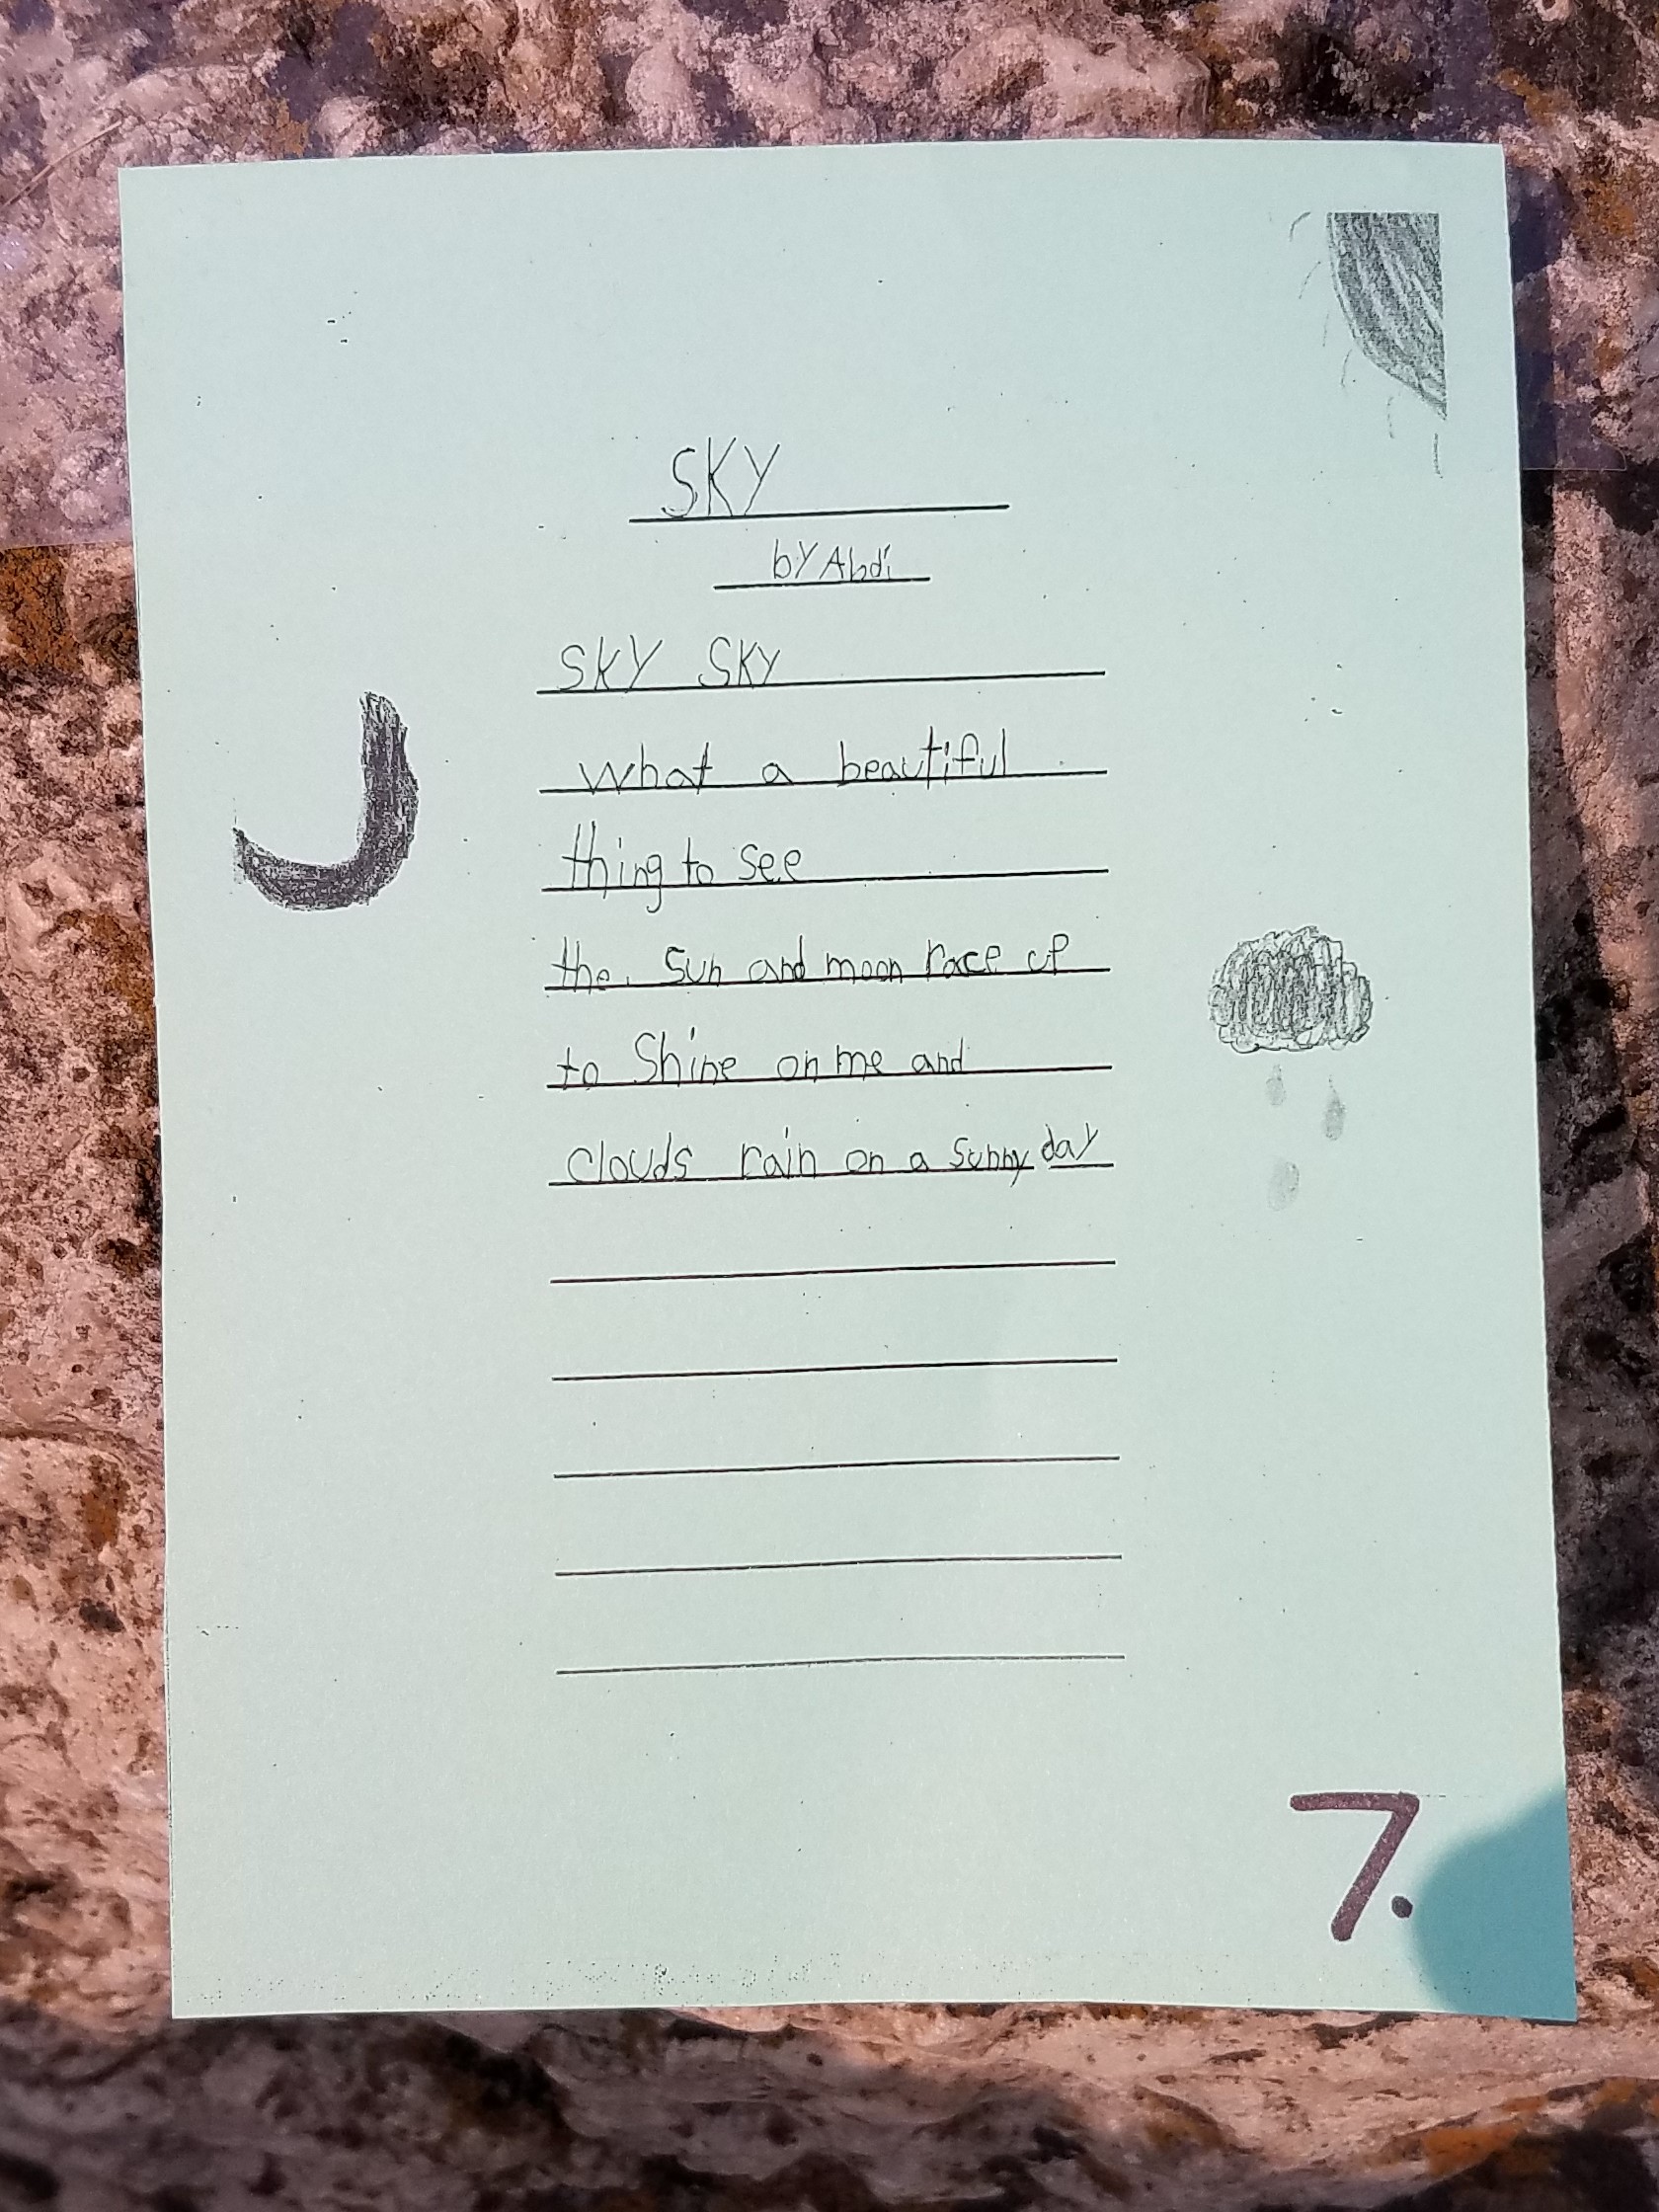 SKY
by Abdi
SKY SKY
what a beautiful
thing to see
the sun and moon race up
to Shine on me and
clouds rain on a sunny day
7.